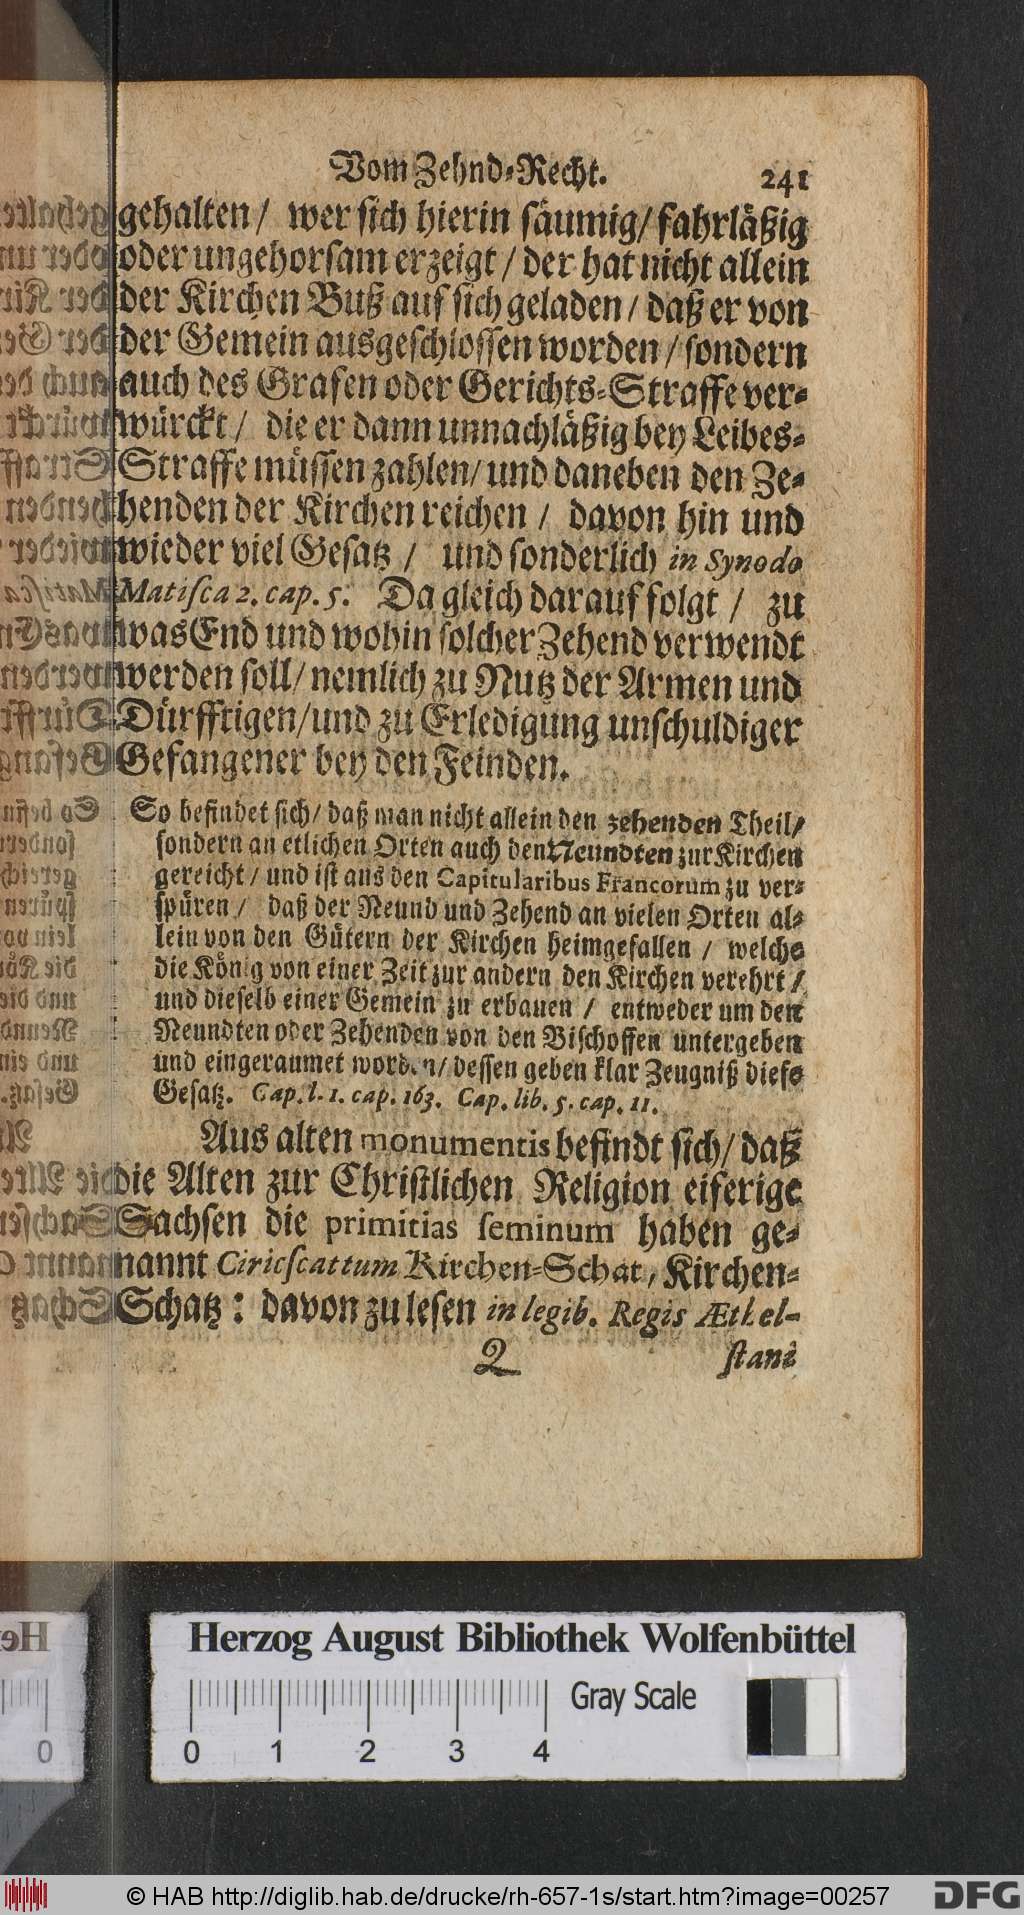 Vom Zehnd-Recht. 241
gehalten / wer sich hierin säumig / fahrläßig
oder ungehorsam erzeigt / der hat nicht allein
der Kirchen Buß auf sich geladen / daß er von
der Gemein ausgeschlossen worden / sondern
auch des Grafen oder Gerichts-Straffe ver-
würckt / die er dann unnachläßig bey Leibes-
Straffe müssen zahlen / und daneben den Ze-
henden der Kirchen reichen / davon hin und
wieder viel Gesatz / und sonderlich in Synodo
Matiſca 2. cap. 5. Da gleich darauf folgt / zu
was End und wohin solcher Zehend verwendt
werden soll / nemlich zu Nutz der Armen und
Dürfftigen / und zu Erledigung unschuldiger
Gefangener bey den Feinden.
So befindet sich / daß man nicht allein den zehenden Theil /
sondern an etlichen Orten auch den Neundten zur Kirchen
gereicht / und ist aus den Capitularibus Francorum zu ver-
spüren / daß der Neund und Zehend an vielen Orten al-
lein von den Gütern der Kirchen heimgefallen / welche
die König von einer Zeit zur andern den Kirchen verehrt /
und dieselb einer Gemein zu erbauen / entweder um den
Neundten oder Zehenden von den Bischoffen untergeben
und eingeraumet worden / dessen geben klar Zeugniß diese
Gesatz. Cap. l. 1. cap. 163. Cap. lib. 5. cap. 11.
Aus alten monumentis befindt sich / daß
die Alten zur Christlichen Religion eiferige
Sachsen die primitias ſeminum haben ge-
nannt Ciricſcattum Kirchen-Schat, Kirchen-
Schatz : davon zu lesen in legib. Regis Æthel-
Q ſtani
Herzog August Bibliothek Wolfenbüttel
0 1 2 3 4 Gray Scale
© HAB http://diglib.hab.de/drucke/rh-657-1s/start.htm?image=00257 DFG